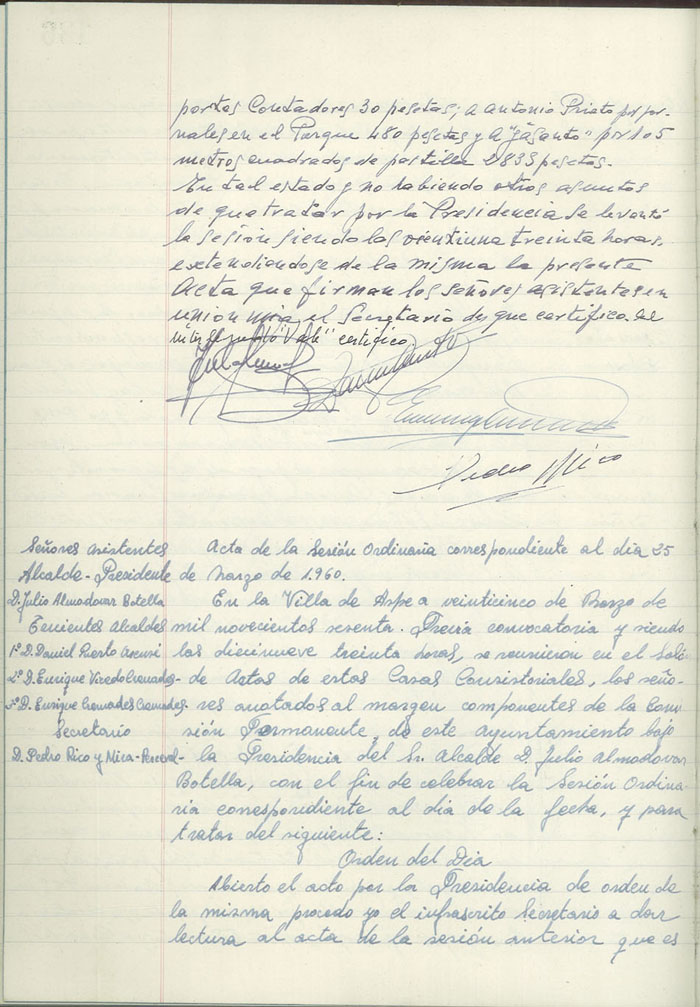 portes Contadores 30 pesetas; a Antonio Prieto por jor-
nales en el Parque 480 pesetas y a "Gasanto" por 105
metros cuadrados de pastilla 2835 pesetas.
En tal estado y no habiendo otros asuntos
de que tratar por la Presidencia se levantó
la sesión siendo las veintiuna treinta horas,
extendiendose de la misma la presente
Acta que firman los señores asistentes en
unión mia el Secretario de que certifico.
"Vale" certifico
Pedro Rico
Señores asistentes
Alcalde-Presidente
D. Julio Almodovar Botella
Tenientes Alcaldes
1º D. Daniel Puerto Asensi
2º D. Enrique Viredo Cremades
3º D. Enrique Cremades Cremades
Secretario
D. Pedro Rico y Mira-Perceval
Acta de la Sesión Ordinaria correspondiente al dia 25
de Marzo de 1.960.
En la Villa de Aspe a veinticinco de Marzo de
mil novecientos sesenta. Previa convocatoria y siendo
las diecinueve treinta horas, se reunieron en el Salón
de Actos de estas Casas Consistoriales, los seño-
res anotados al margen componentes de la Comi
sión Permanente, de este ayuntamiento bajo
la Presidencia del Sr. Alcalde D. Julio Almodovar
Botella, con el fin de celebrar la Sesión Ordina
ria correspondiente al dia de la fecha, y para
tratar del siguiente:
Orden del Dia
Abierto el acto por la Presidencia de orden de
la misma procedo yo el infrascrito Secretario a dar
lectura al acta de la sesión anterior que es